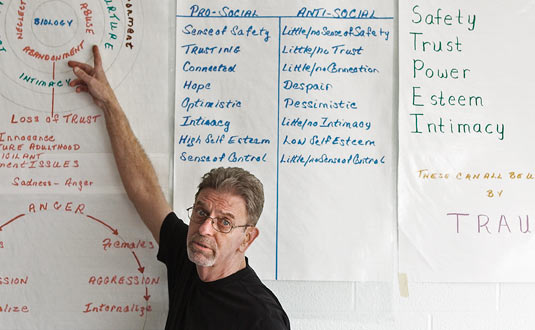 NEGLECT
BIOLOGY
ABUSE
ABANDONMENT
INTIMACY
Loss of TRUST
Innocence
ADULTHOOD
ISSUES
Sadness - Anger
ANGER
Females
AGGRESSION
Internalize
PRO-SOCIAL ANTI-SOCIAL
Sense of Safety Little/no Sense of Safety
TRUSTING Little/no Trust
Connected Little/no Connection
Hope Despair
Optimistic Pessimistic
Intimacy Little/no Intimacy
High Self Esteem Low Self Esteem
Sense of Control Little/no Sense of Control
Safety
Trust
Power
Esteem
Intimacy
THESE CAN ALL BE
BY
TRAU